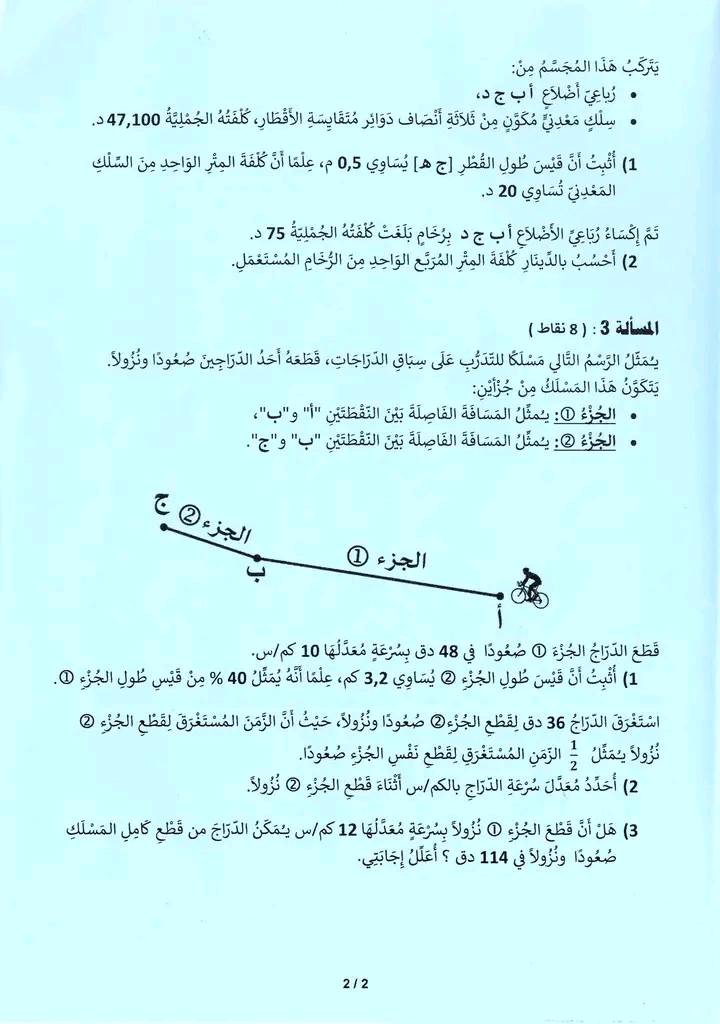 يَتَرَكَّبُ هَذَا المُجَسَّمُ مِنْ:
• رُبَاعِيّ أَضْلَاعٍ أ ب ج د،
• سِلْكٍ مَعْدِنِيٍّ مُكَوَّنٍ مِنْ ثَلَاثَةِ أَنْصَافِ دَوَائِرَ مُتَقَايِسَةِ الأَقْطَارِ، كُلْفَتُهُ الجُمْلِيَّةُ 47,100 د.
1) أُثْبِتُ أَنَّ قَيْسَ طُولِ القُطْرِ [ج هـ] يُسَاوِي 0,5 م، عِلْمًا أَنَّ كُلْفَةَ المِتْرِ الوَاحِدِ مِنَ السِّلْكِ
المَعْدِنِيّ تُسَاوِي 20 د.
تَمَّ إِكْسَاءُ رُبَاعِيِّ الأَضْلَاعِ أ ب ج د بِرُخَامٍ بَلَغَتْ كُلْفَتُهُ الجُمْلِيَّةُ 75 د.
2) أَحْسُبُ بِالدِّينَارِ كُلْفَةَ المِتْرِ المُرَبَّعِ الوَاحِدِ مِنَ الرُّخَامِ المُسْتَعْمَلِ.
المسألة 3 : ( 8 نقاط )
يُمَثِّلُ الرَّسْمُ التَّالِي مَسْلَكًا للتَّدَرُّبِ عَلَى سِبَاقِ الدَّرَاجَاتِ، قَطَعَهُ أَحَدُ الدَّرَاجِينَ صُعُودًا ونُزُولاً.
يَتَكَوَّنُ هَذَا المَسْلَكُ مِنْ جُزْأَيْنِ:
• الجُزْءُ ①: يُمثِّلُ المَسَافَةَ الفَاصِلَةَ بَيْنَ النّقْطَتَيْنِ "أ" و"ب"،
• الجُزْءُ ②: يُمثِّلُ المَسَافَةَ الفَاصِلَةَ بَيْنَ النّقْطَتَيْنِ "ب" و"ج".
ج
الجزء ②
ب
الجزء ①
أ
قَطَعَ الدَّرَاجُ الجُزْءَ ① صُعُودًا فِي 48 دق بِسُرْعَةٍ مُعَدَّلُهَا 10 كم/س.
1) أُثْبِتُ أَنَّ قَيْسَ طُولِ الجُزْءِ ② يُسَاوِي 3,2 كم، عِلْمًا أَنَّهُ يُمَثِّلُ 40 % مِنْ قَيْسِ طُولِ الجُزْءِ ①.
اسْتَغْرَقَ الدَّرَاجُ 36 دق لِقَطْعِ الجُزْءِ② صُعُودًا ونُزُولاً، حَيْثُ أَنَّ الزَّمَنَ المُسْتَغْرَقَ لِقَطْعِ الجُزْءِ ②
نُزُولاً يُمَثِّلُ 1/2 الزَّمَنِ المُسْتَغْرَقِ لِقَطْعِ نَفْسِ الجُزْءِ صُعُودًا.
2) أُحَدِّدُ مُعَدَّلَ سُرْعَةِ الدَّرَاجِ بالكم/س أَثْنَاءَ قَطْعِ الجُزْءِ ② نُزُولاً.
3) هَلْ أَنَّ قَطْعَ الجُزْءِ ① نُزُولاً بِسُرْعَةٍ مُعَدَّلُهَا 12 كم/س يُمَكِّنُ الدَّرَاجَ من قَطْعِ كَامِلِ المَسْلَكِ
صُعُودًا ونُزُولاً فِي 114 دق ؟ أُعَلِّلُ إِجَابَتِي.
2 / 2